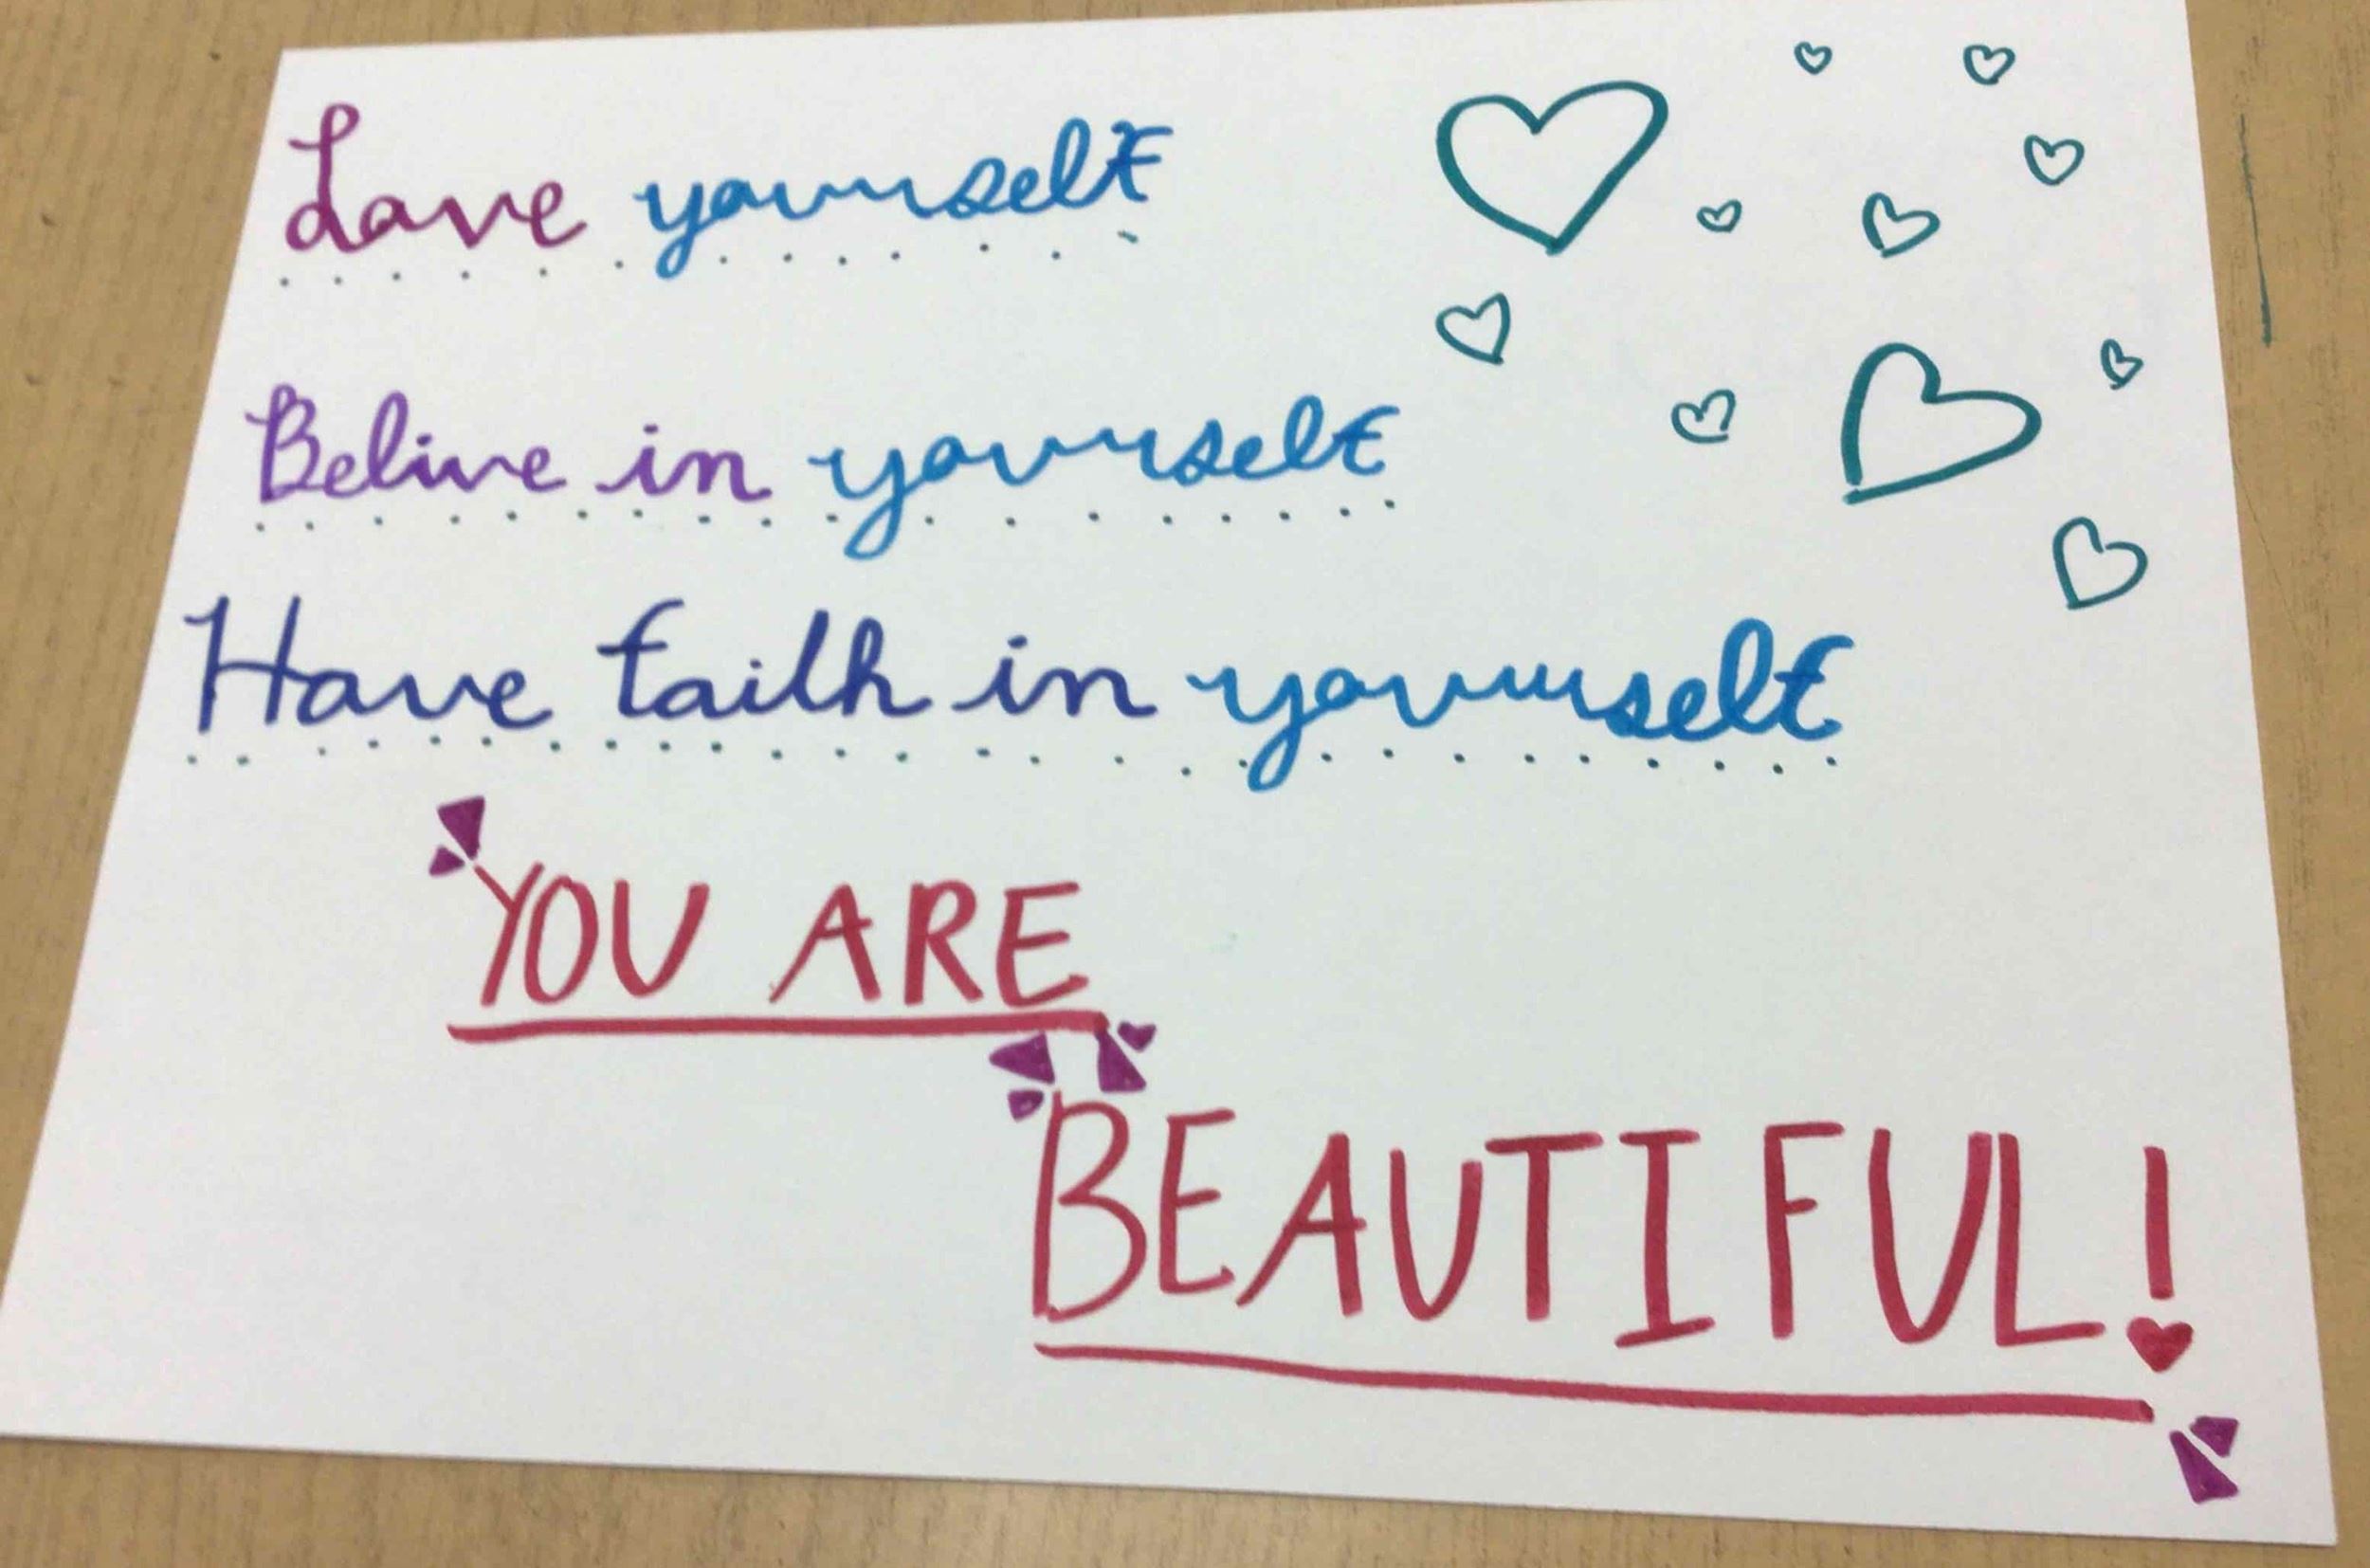 Love yourself
Belive in yourself
Have faith in yourself
YOU ARE
BEAUTIFUL!